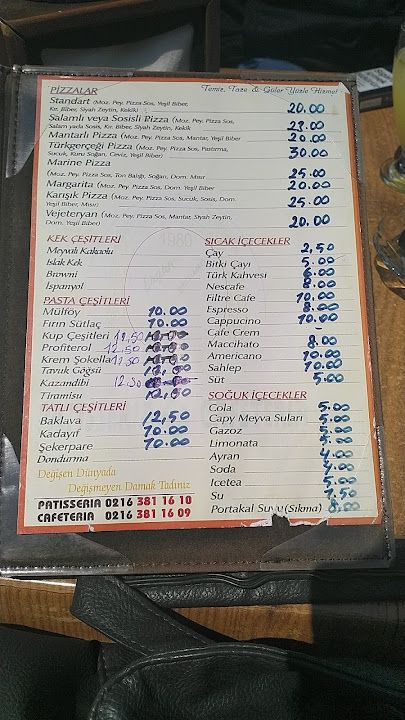 PİZZALAR
Temiz, Taze & Güler Yüzle Hizmet
Standart (Moz. Pey. Pizza Sos, Yeşil Biber,
Kır. Biber, Siyah Zeytin, Kekik) 20.00
Salamlı veya Sosisli Pizza (Moz. Pey. Pizza Sos,
Salam yada Sosis, Kır. Biber, Siyah Zeytin, Kekik
Mantarlı Pizza (Moz. Pey. Pizza Sos, Mantar, Yeşil Biber 20.00
Türkgerçeği Pizza (Moz. Pey. Pizza Sos, Pastırma,
Sucuk, Kuru Soğan, Ceviz, Yeşil Biber) 30.00
Marine Pizza
(Moz. Pey. Pizza Sos, Ton Balığı, Soğan, Dom. Mısır 25.00
Margarita (Moz. Pey. Pizza Sos, Dom. Yeşil Biber 20.00
Karışık Pizza (Moz. Pey. Pizza Sos, Sucuk, Sosis, Dom.
Yeşil Biber, Mısır) 25.00
Vejeteryan (Moz. Pey. Pizza Sos, Mantar, Siyah Zeytin,
Dom. Yeşil Biber) 20.00
KEK ÇEŞİTLERİ
Meyvalı Kakaolu
Islak Kek
Browni
İspanyol
PASTA ÇEŞİTLERİ
Mülföy 10.00
Fırın Sütlaç 10.00
Kup Çeşitleri 12.50
Profiterol 12.50
Krem Şokella
Tavuk Göğsü
Kazandibi 12.50
Tiramisu
TATLI ÇEŞİTLERİ
Baklava 12,50
Kadayıf 10.00
Şekerpare 10.00
Dondurma
Değişen Dünyada
Değişmeyen Damak Tadınız
PATISSERIA 0216 381 16 10
CAFETERIA 0216 381 16 09
1980
SICAK İÇECEKLER
Çay 2,50
Bitki Çayı 5.00
Türk Kahvesi 6.00
Nescafe 8.00
Filtre Cafe 10.00
Espresso 8.00
Cappucino 10.00
Cafe Crem -
Macchiato 8.00
Americano 10.00
Sahlep 10.00
Süt 5.00
SOĞUK İÇECEKLER
Cola 5.00
Capy Meyva Suları 5.00
Gazoz 5.00
Limonata 5.00
Ayran 4.00
Soda 4.00
Icetea 5.00
Su 1,50
Portakal Suyu (Sıkma) 8.00